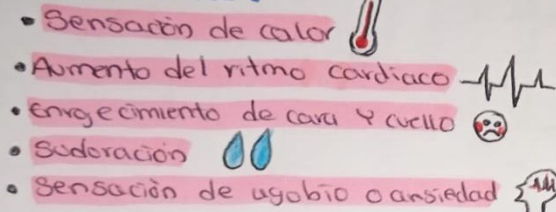 • Sensación de calor
• Aumento del ritmo cardiaco
• Enrgecimiento de cara y cuello
• Sudoración
• Sensación de agobio o ansiedad